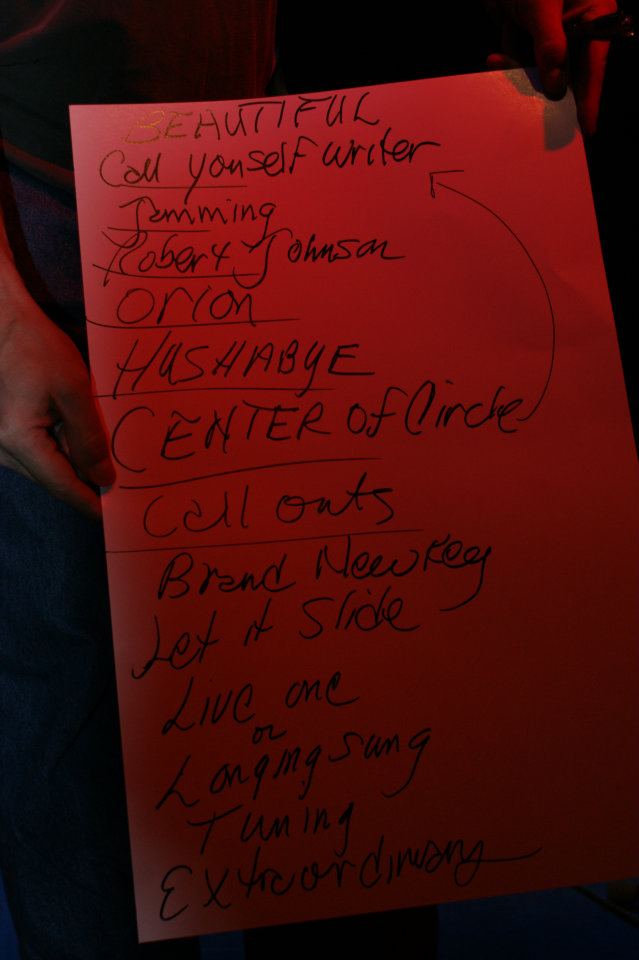 BEAUTIFUL
Call yourself writer
Jamming
Robert Johnson
Orion
HUSHABYE
CENTER of Circle
Call outs
Brand New Key
Let it Slide
Live one
or
Longing song
Tuning
Extraordinary